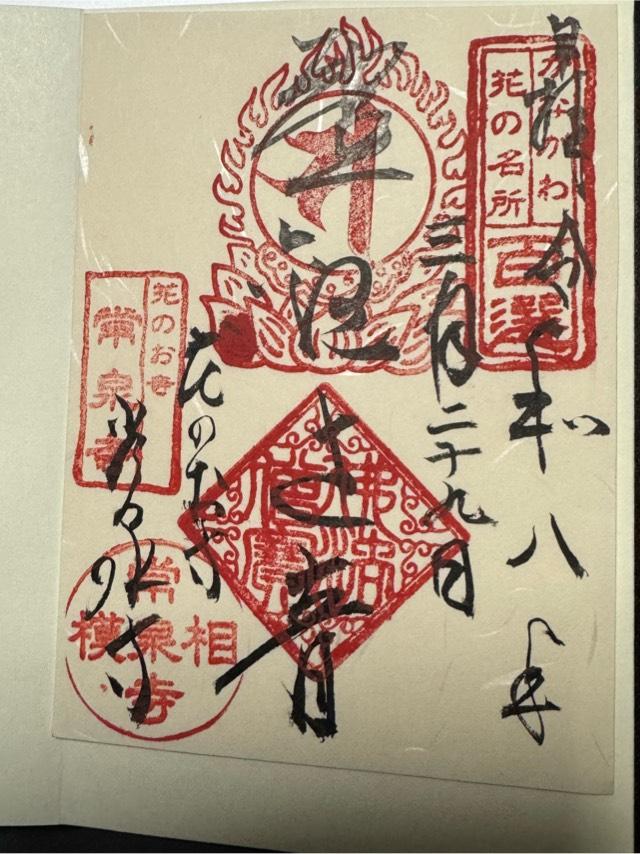 奉拝 令和八年
三月二十九日
花のお寺
常泉寺
かながわ
花の名所
百選
佛法僧寶
花のお寺
常泉寺
相模
常泉寺